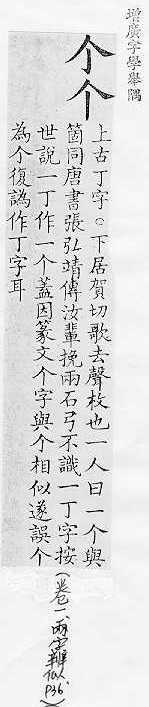 增廣字學舉隅
个个
上古丁字。下居賀切歌去聲枚也一人曰一个與
箇同唐書張弘靖傳汝輩挽兩石弓不識一丁字按
世說一丁作一个蓋因篆文个字與个相似遂誤个
為个復譌作丁字耳
(卷一、兩字辨似 P36)